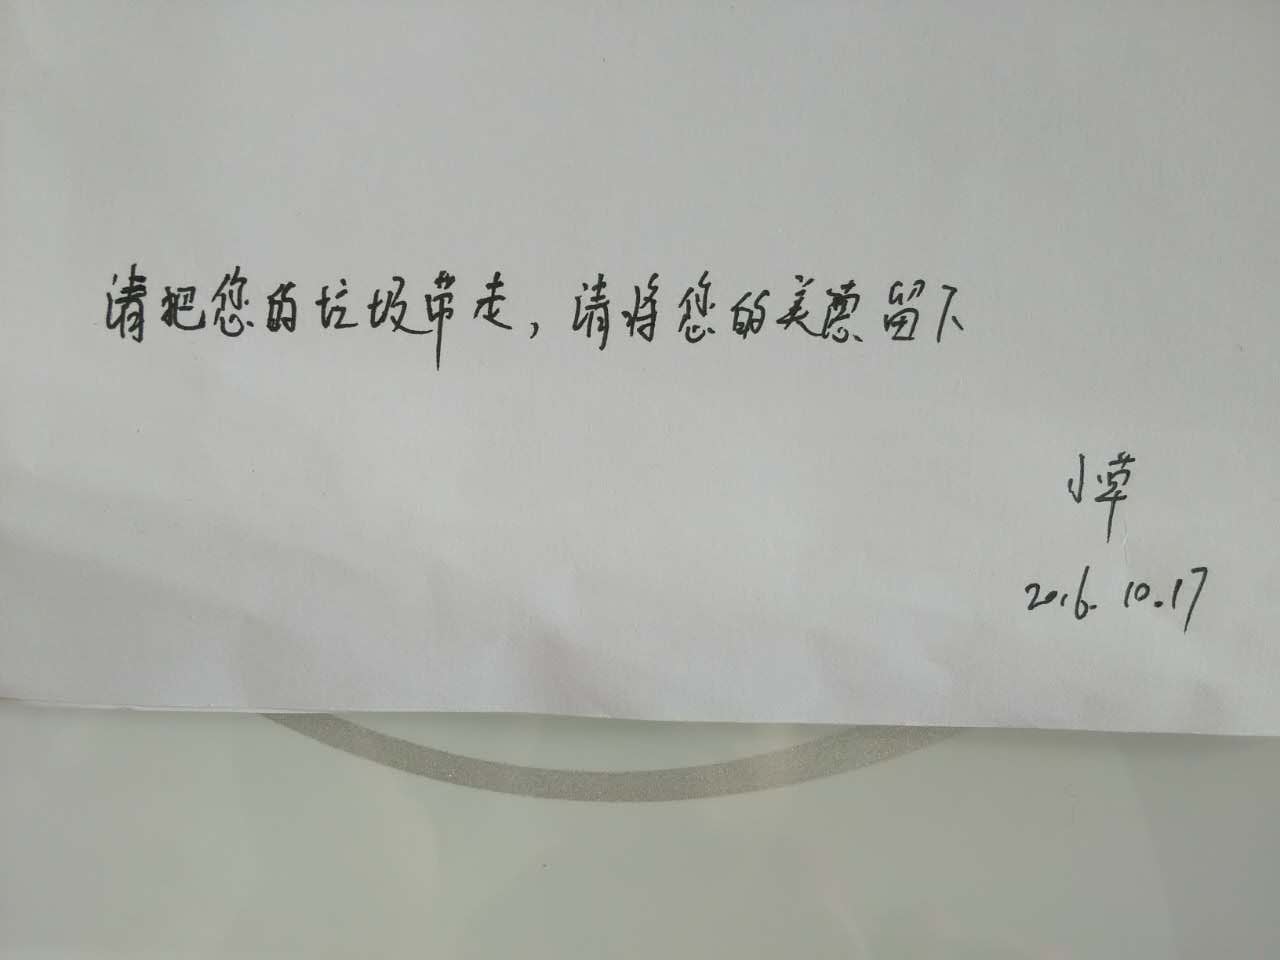 请把您的垃圾带走，请将您的美德留下
小草
2016.10.17